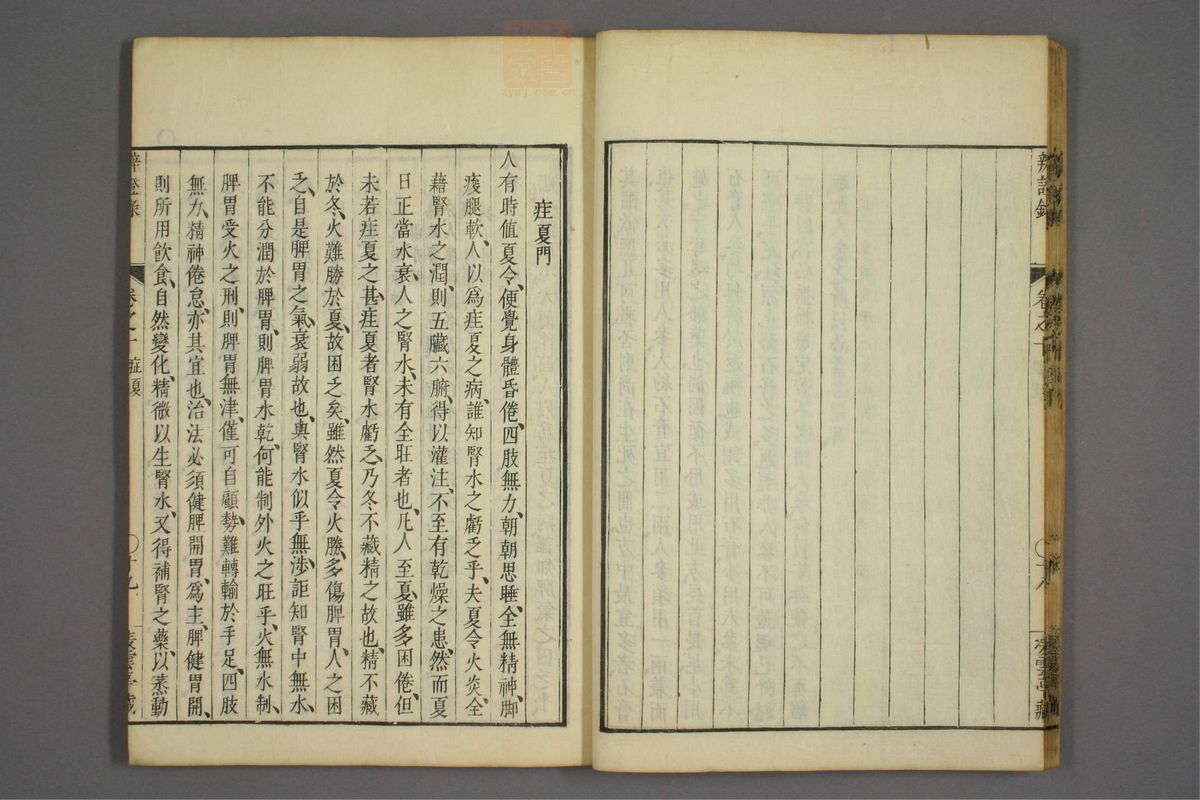 辨證錄 卷之 ○十八 凌雲亭藏
疰夏門
人有時值夏令、便覺身體昏倦、四肢無力、朝朝思睡、全無精神、脚
痠腿軟、人以為疰夏之病、誰知腎水之虧乏乎、夫夏令火炎、全
藉腎水之潤、則五臟六腑、得以灌注、不至有乾燥之患、然而夏
日正當水衰、人之腎水、未有全旺者也、凡人至夏、雖多困倦、但
未若疰夏之甚、疰夏者腎水虧乏、乃冬不藏精之故也、精不藏
於冬、火難勝於夏、故困乏矣、雖然夏令火勝、多傷脾胃、人之困
乏、自是脾胃之氣衰弱故也、與腎水似乎無涉、詎知腎中無水、
不能分潤於脾胃、則脾胃水乾、何能制外火之旺乎、火無水制、
脾胃受火之刑、則脾胃無津、僅可自顧、勢難轉輸於手足、四肢
無力、精神倦怠、亦其宜也、治法必須健脾開胃、為主、脾健胃開、
則所用飲食、自然變化、精微以生腎水、又得補腎之藥、以蒸動
辨證錄 卷之十 疰夏 ○十九 凌雲亭藏